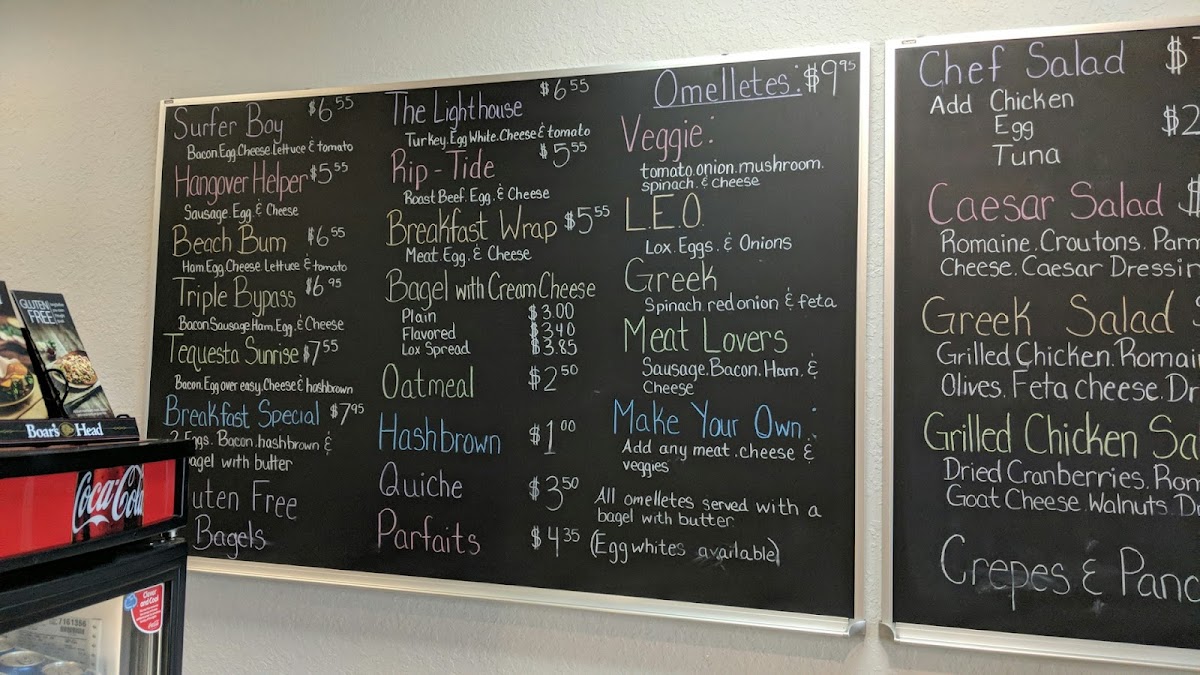 Surfer Boy $6.55
Bacon.Egg.Cheese.Lettuce & tomato
Hangover Helper $5.55
Sausage.Egg.& Cheese
Beach Bum $6.55
Ham.Egg.Cheese.Lettuce & tomato
Triple Bypass $6.95
Bacon.Sausage.Ham.Egg.& Cheese
Tequesta Sunrise $7.55
Bacon.Egg over easy.Cheese & hashbrown
Breakfast Special $7.95
2 Eggs. Bacon.hashbrown &
agel with butter
luten Free
Bagels
The Lighthouse $6.55
Turkey.Egg White.Cheese & tomato
Rip-Tide $5.55
Roast Beef.Egg.& Cheese
Breakfast Wrap $5.55
Meat.Egg.& Cheese
Bagel with Cream Cheese
Plain $3.00
Flavored $3.40
Lox Spread $3.85
Oatmeal $2.50
Hashbrown $1.00
Quiche $3.50
Parfaits $4.35
Omelletes: $9.95
Veggie:
tomato.onion.mushroom.
spinach.& cheese
L.E.O.
Lox.Eggs.& Onions
Greek
Spinach.red onion & feta
Meat Lovers
Sausage.Bacon.Ham.&
Cheese
Make Your Own:
Add any meat.cheese &
veggies
All omelletes served with a
bagel with butter
(Egg whites available)
Chef Salad $
Add Chicken
Egg $2
Tuna
Caesar Salad $
Romaine.Croutons.Parm
Cheese.Caesar Dressin
Greek Salad
Grilled Chicken.Romai
Olives.Feta cheese.Dr
Grilled Chicken Sa
Dried Cranberries.Rom
Goat Cheese.Walnuts.Dr
Crepes & Panc
GLUTEN
FREE
Boar's Head
Coca-Cola
Clever
and Cool